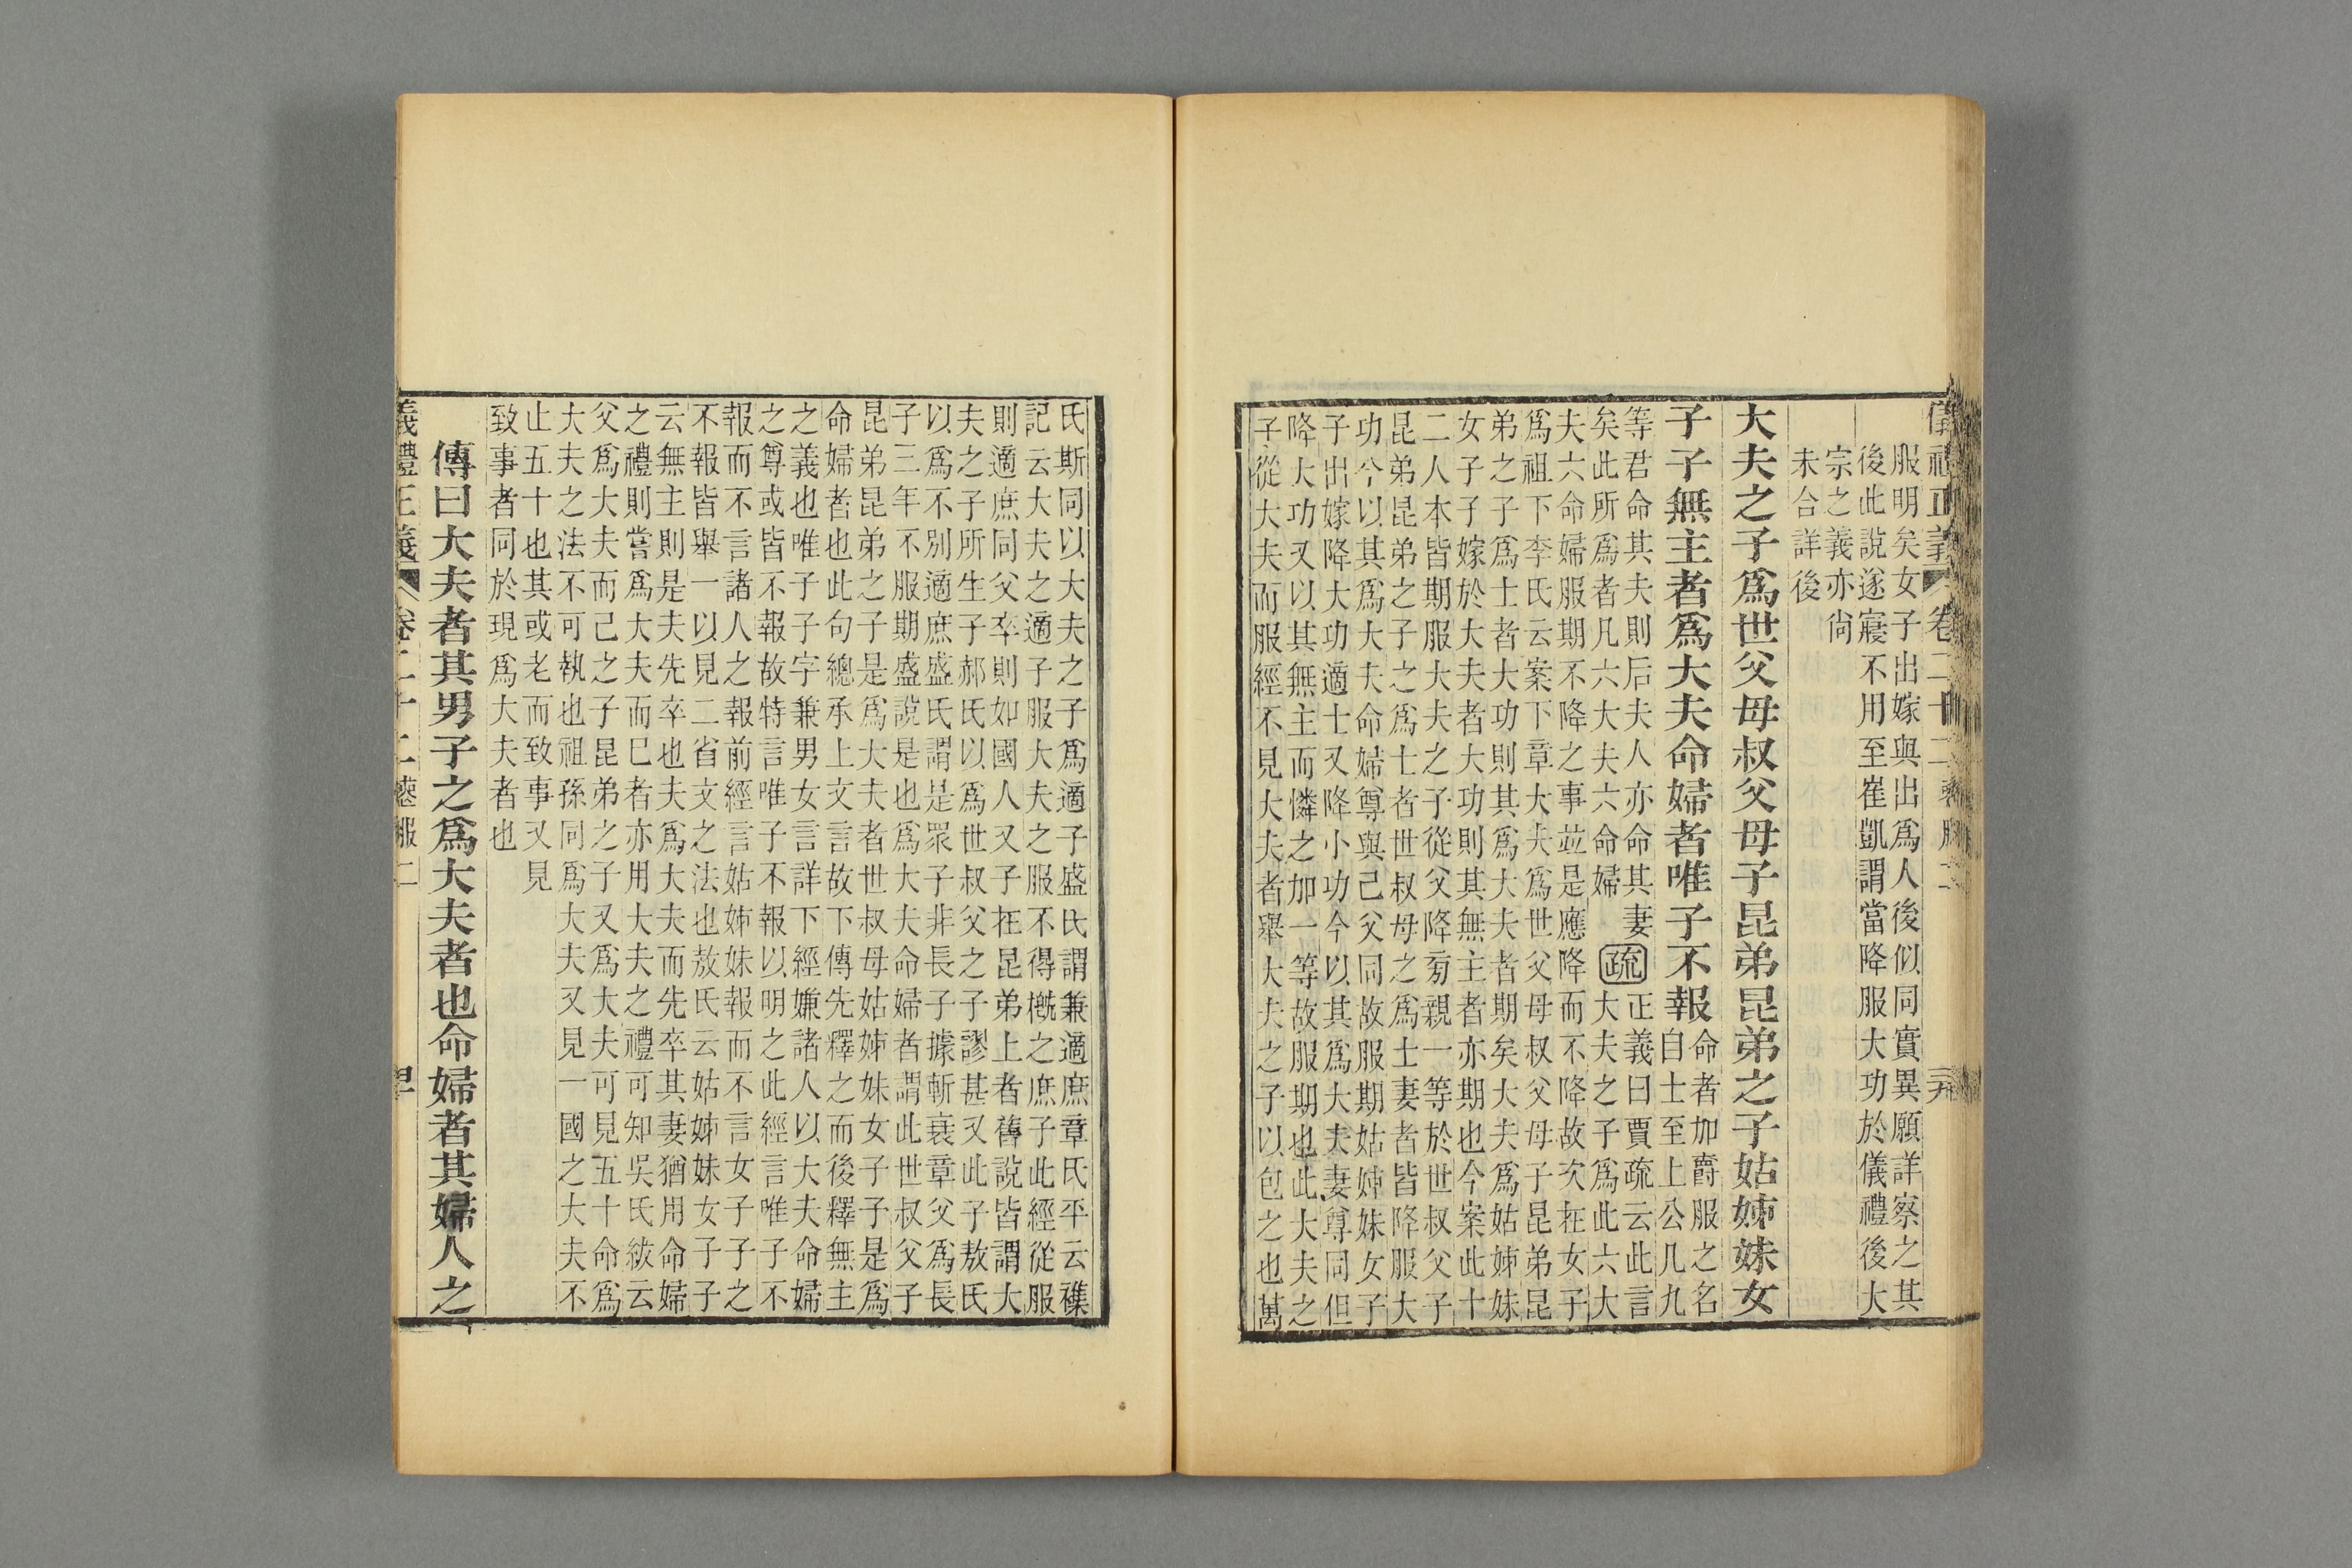 儀禮正義 卷二十二 喪服二
服明矣女子出嫁與出爲人後似同實異願詳察之其
後此說遂寢不用至崔凱謂當降服大功於儀禮後大
宗之義亦尙
未合詳後
大夫之子爲世父母叔父母子昆弟昆弟之子姑姊妹女
子子無主者爲大夫命婦者唯子不報
命者加爵服之名
自士至上公凡九
等君命其夫則后夫人亦命其妻
矣此所爲者凡六大夫六命婦
疏
正義曰賈疏云此言
大夫之子爲此六大
夫六命婦服期不降之事竝是應降而不降故次在女子
爲祖下李氏云案下章大夫爲世父母叔父母子昆弟昆
弟之子爲士者大功則其爲大夫者期矣大夫爲姑姊妹
女子子嫁於大夫者大功則其無主者亦期也今案此十
二人本皆期服大夫之子從父降旁親一等於世叔父子
昆弟昆弟之子之爲士者世叔母之爲士妻者皆降服大
功今以其爲大夫命婦尊與己父同故服期姑姊妹女子
子出嫁降大功適士又降小功今以其爲大夫妻尊同但
降大功又以其無主而憐之加一等故服期也此大夫之
子從大夫而服經不見大夫者舉大夫之子以包之也萬
氏斯同以大夫之子爲適子盛氏謂兼適庶章氏平云襍
記云大夫之適子服大夫之服不得槪之庶子此經從服
則適庶同父卒則如國人又子在昆弟上者舊說皆謂大
夫之子所生子郝氏以爲世叔父之子謬甚又此子敖氏
以爲不別適庶盛氏謂是眾子非長子據斬衰章父爲長
子三年不服期盛說是也爲大夫命婦者謂此世叔父子
昆弟昆弟之子是爲大夫者世叔母姑姊妹女子子是爲
命婦者也此句總承上文言故下傳先釋之而後釋無主
之義也唯子子字兼男女言詳下經嫌諸人以大夫命婦
之尊或皆不報故特言唯子不報以明之此經言唯子不
報而不言諸人之報前經言姑姊妹報而不言女子子之
不報皆舉一以見二省文之法也敖氏云姑姊妹女子子
云無主則是夫先卒也夫爲大夫而先卒其妻猶用命婦
之禮則嘗爲大夫而巳者亦用大夫之禮可知吳氏紱云
父爲大夫而己之子昆弟之子又爲大夫可見五十命爲
大夫之法不可執也祖孫同爲大夫又見一國之大夫不
止五十也其或老而致事又見
致事者同於現爲大夫者也
傳曰大夫者其男子之爲大夫者也命婦者其婦人之
義禮正義 卷二十二 喪服二